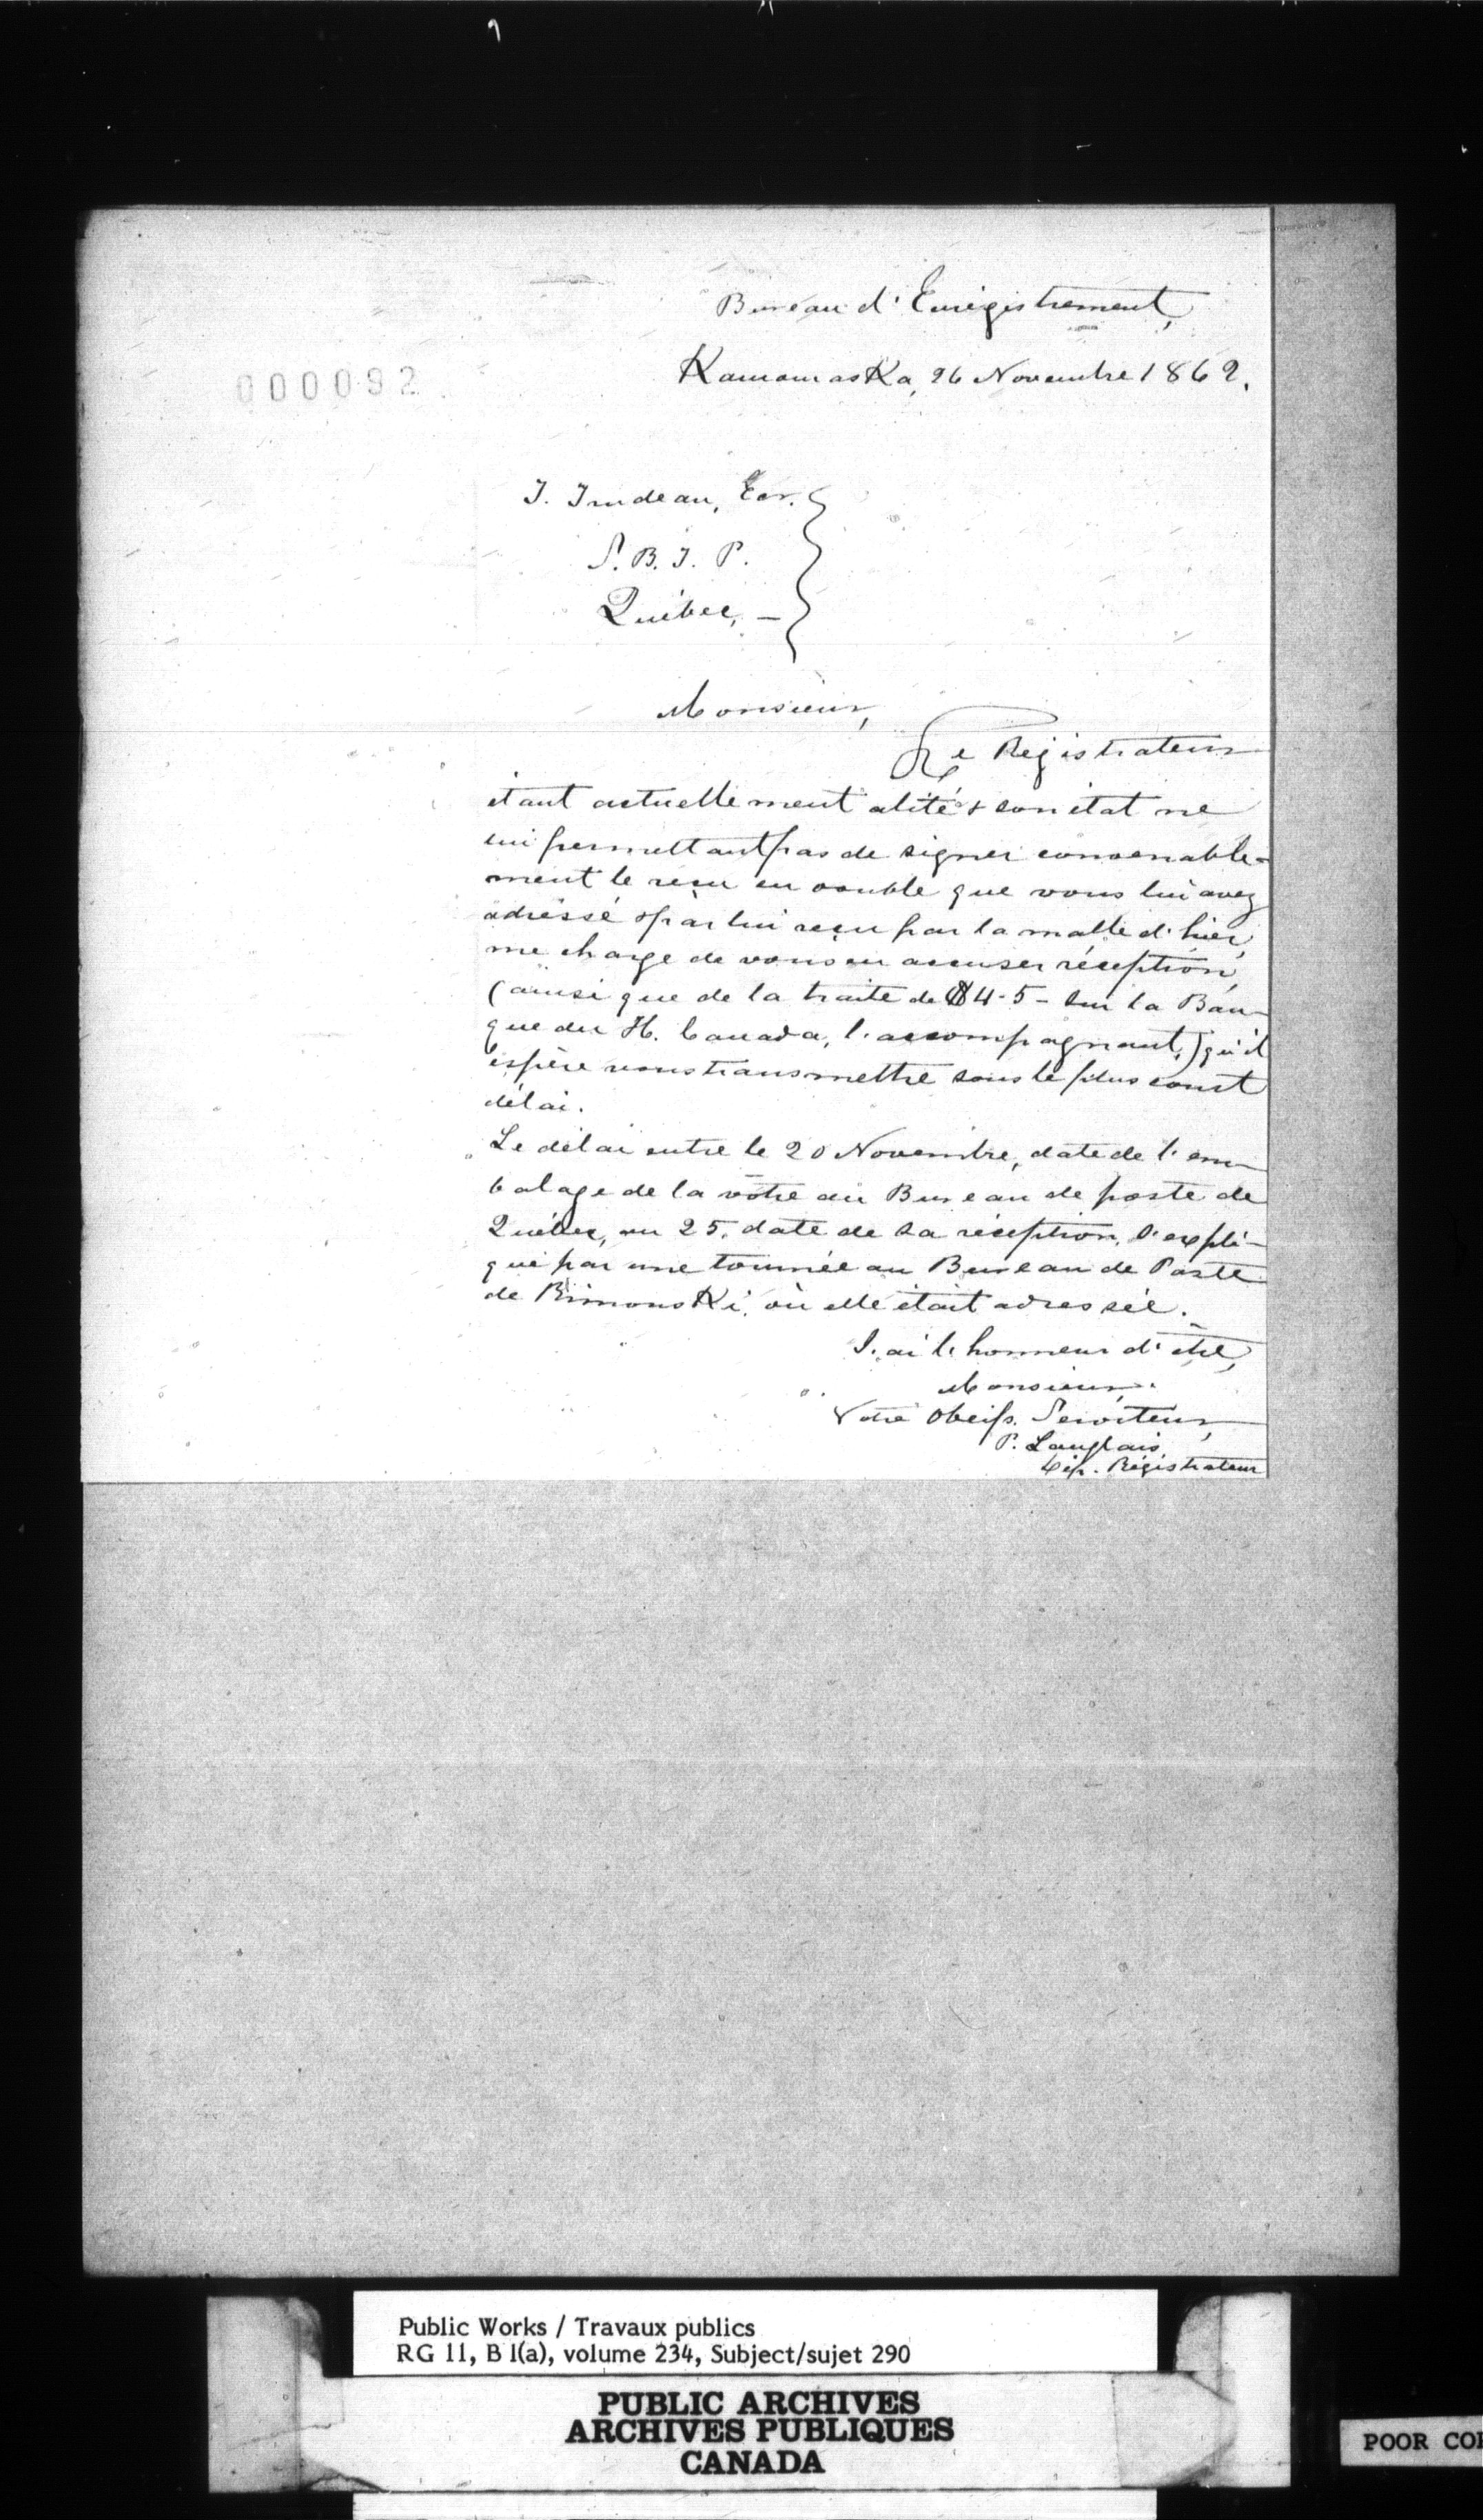 Bureau d'Enrégistrement,
Kamouraska, 26 Novembre 1862.
000092
T. Trudeau, Ecr.
S. B. T. P.
Québec, —
Monsieur,
Le Régistrateur
étant actuellement alité & son état ne
lui permettant pas de signer convenable-
ment le reçu en double que vous lui avez
adressé & par lui reçu par la malle d'hier,
me charge de vous en accuser réception,
(ainsi que de la traite de $4-5- sur la Ban-
que du H. Canada, l'accompagnant,) qu'il
espère vous transmettre sous le plus court
délai.
Le délai entre le 20 Novembre, date de l'em-
balage de la vôtre au Bureau de poste de
Québec, au 25, date de sa réception, s'expli-
que par une tournée au Bureau de Poste
de Rimouski, où elle était adressée.
J'ai l'honneur d'être,
Monsieur,
Votre Obeiss. Serviteur,
P. Langlais,
Dép. Régistrateur
Public Works / Travaux publics
RG 11, B 1(a), volume 234, Subject/sujet 290
PUBLIC ARCHIVES
ARCHIVES PUBLIQUES
CANADA
POOR CO